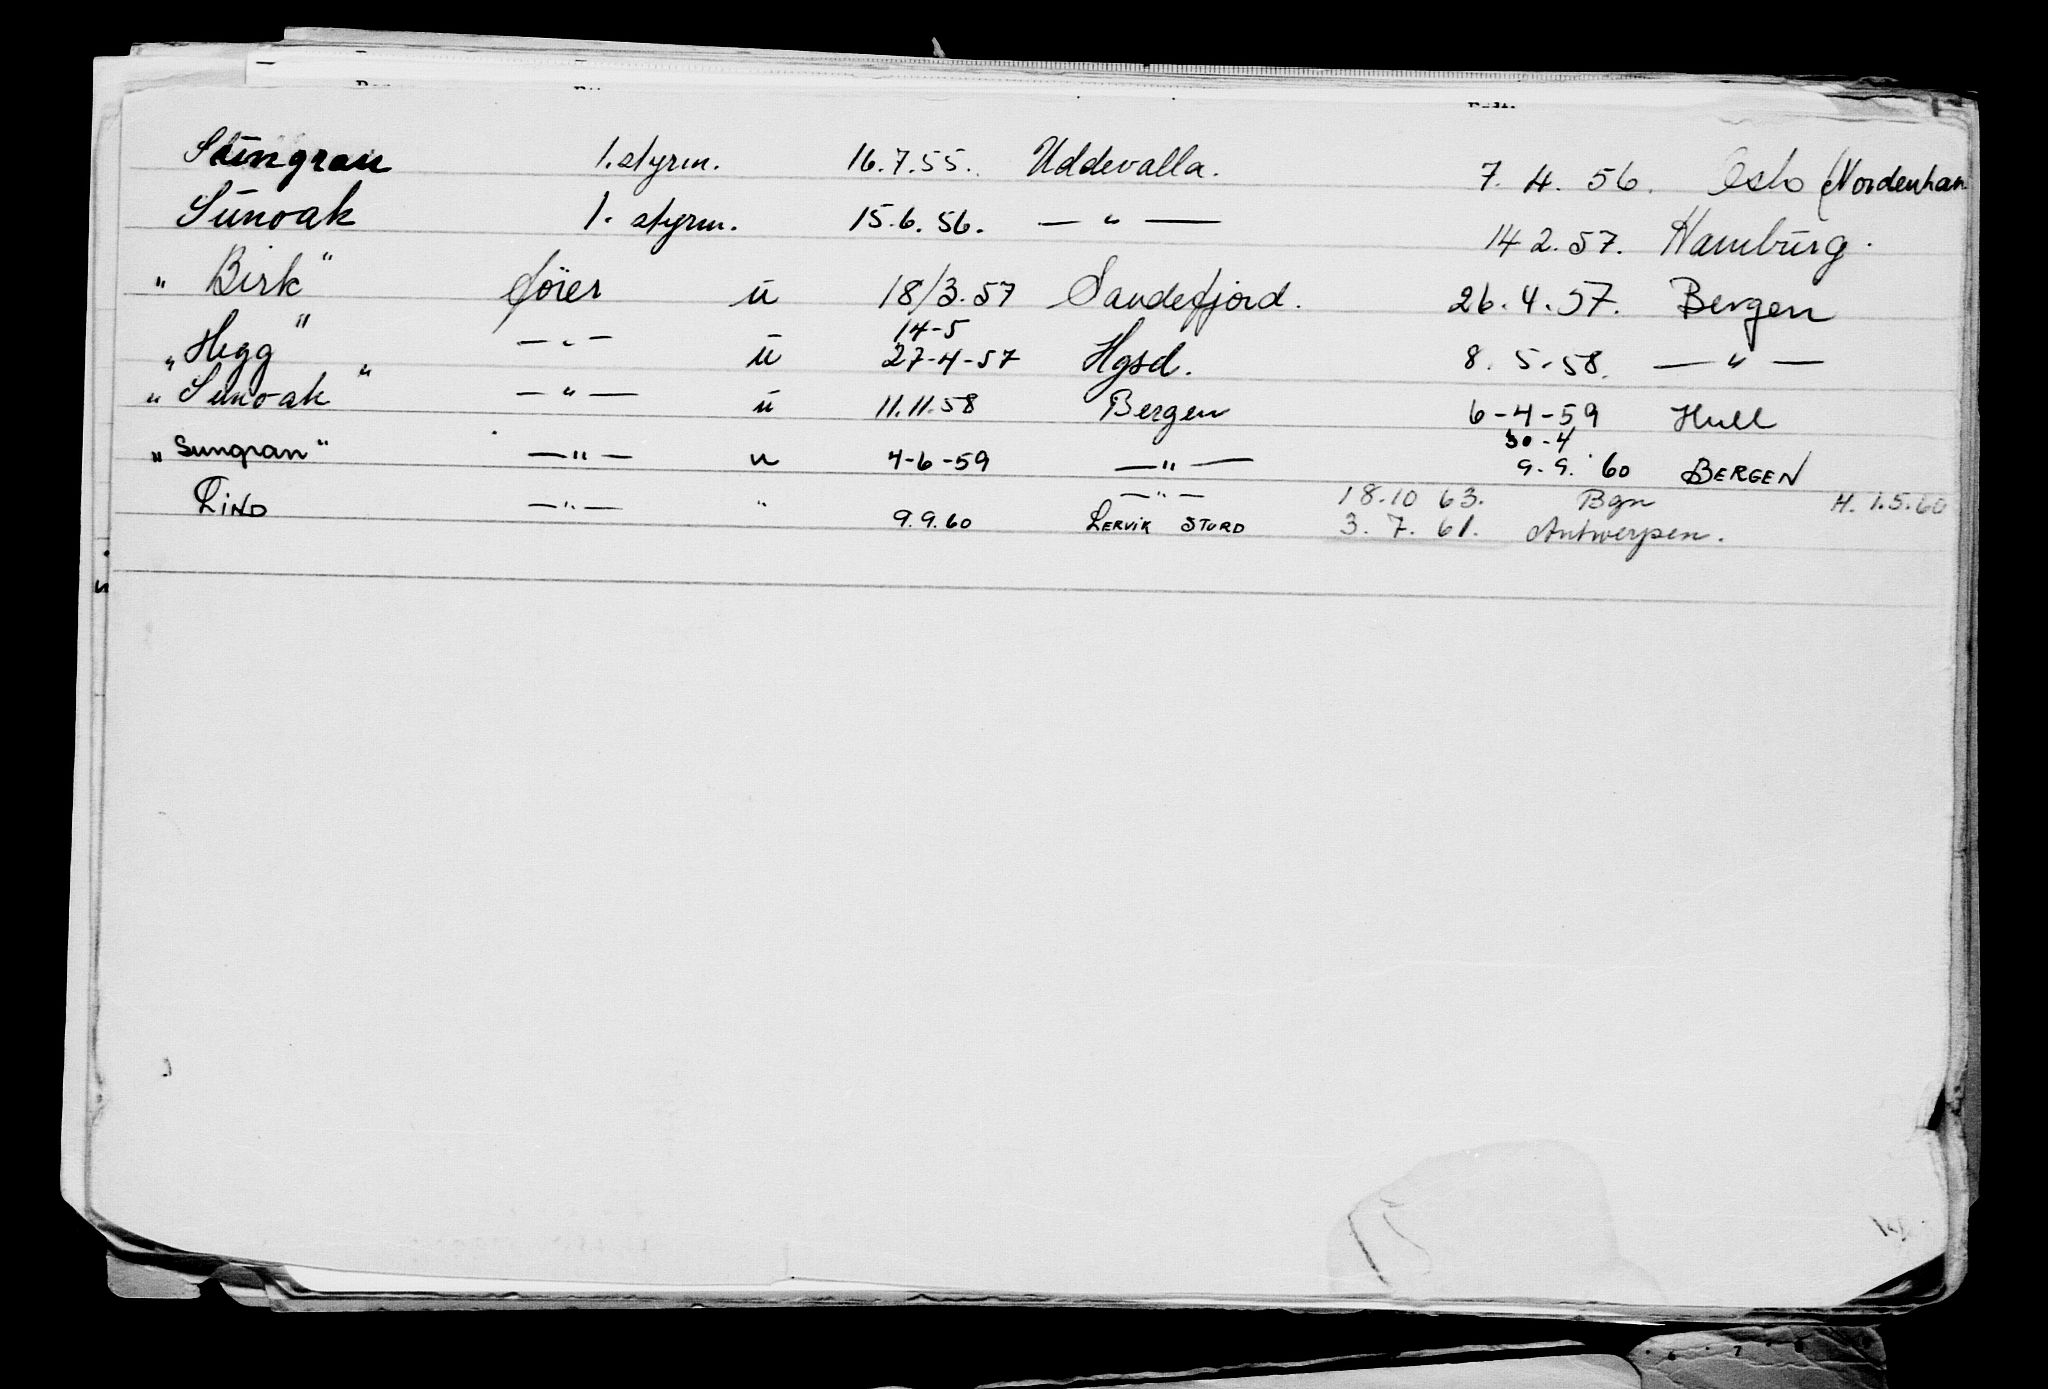 Sungran 1. styrm. 16.7.55. Uddevalla. 7. 4. 56. Oslo (Nordenham
Sunoak 1. styrm. 15.6.56. — " — 14 2.57. Hamburg.
"Birk" fører u 18/3.57 Sandefjord. 26.4.57. Bergen
14-5
"Hegg" — " — u 27-4-57 Hgsd. 8. 5.58. — " —
"Sunoak" — " — u 11.11.58 Bergen 6-4-59 Hull
30-4
"Sungran" — " — u 4-6-59 — " — 9.9.'60 BERGEN
— " — 18.10 63. Bgn H. 1.5.60
LIND — " — " 9.9.60 LERVIK STORD 3. 7. 61. Antwerpen.